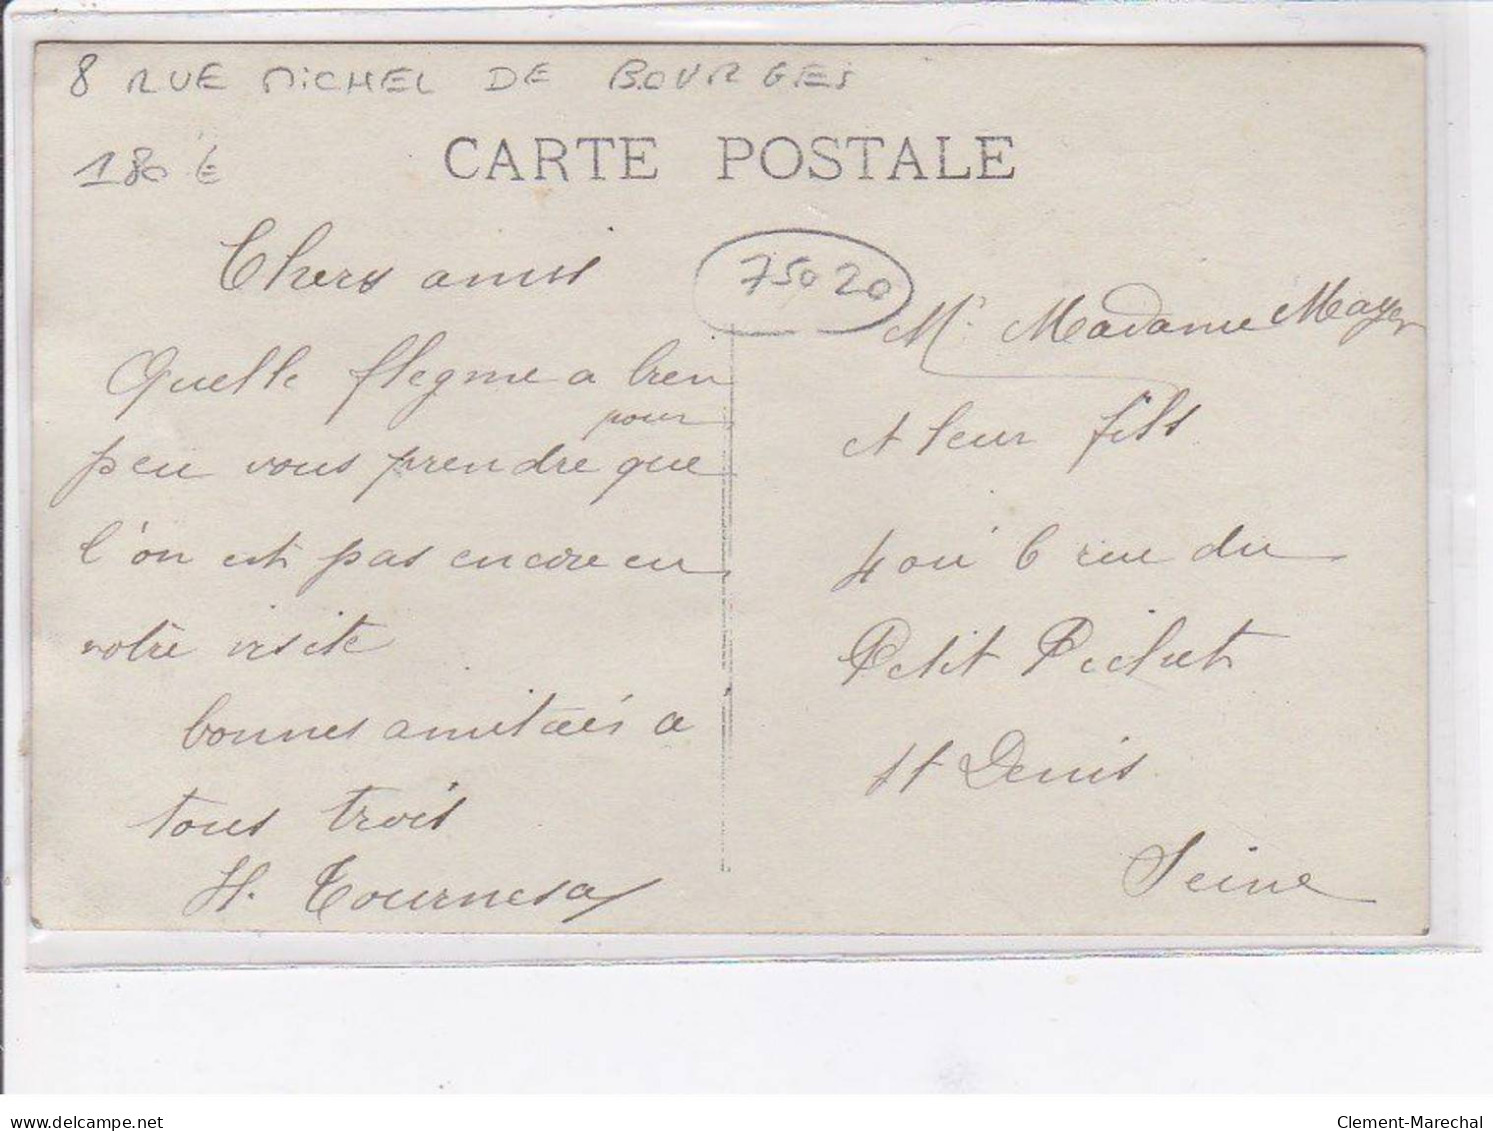 8 RUE MICHEL DE BOURGES
180 €
CARTE POSTALE
75020
Chers amis
Quelle flegme a bien
pour
peu vous prendre que
l'on est pas encore en
votre visite
bonnes amitiés a
tous trois
H. Tournesa
Mr Madame Mayer
et leur fils
4 ou 6 rue du
Petit Pichet
St Denis
Seine
www.delcampe.net
Clement-Marechal